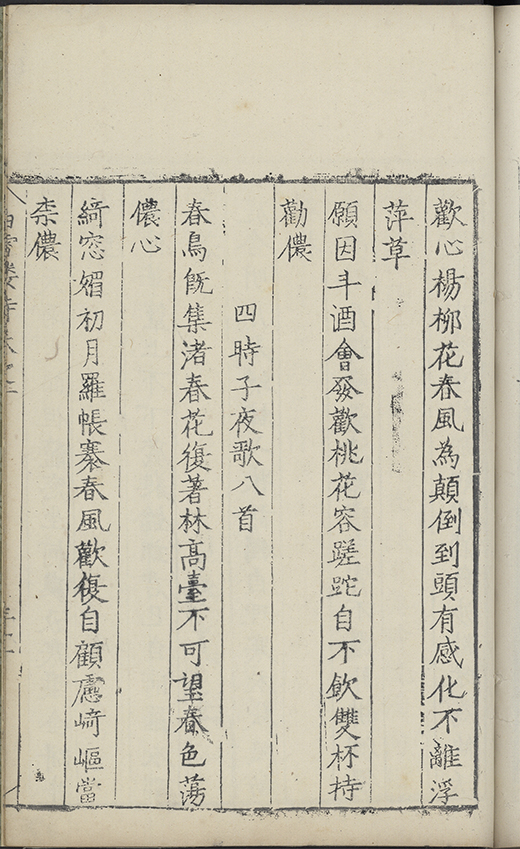 歡心楊柳花春風為顛倒到頭有感化不離浮
萍草
願因斗酒會發歡桃花容蹉跎自不飲雙杯持
勸儂
四時子夜歌八首
春鳥既集渚春花復著林高臺不可望春色蕩
儂心
綺窓媚初月羅帳褰春風歡復自顧慮崎嶇當
柰儂
白雪樓詩卷之二